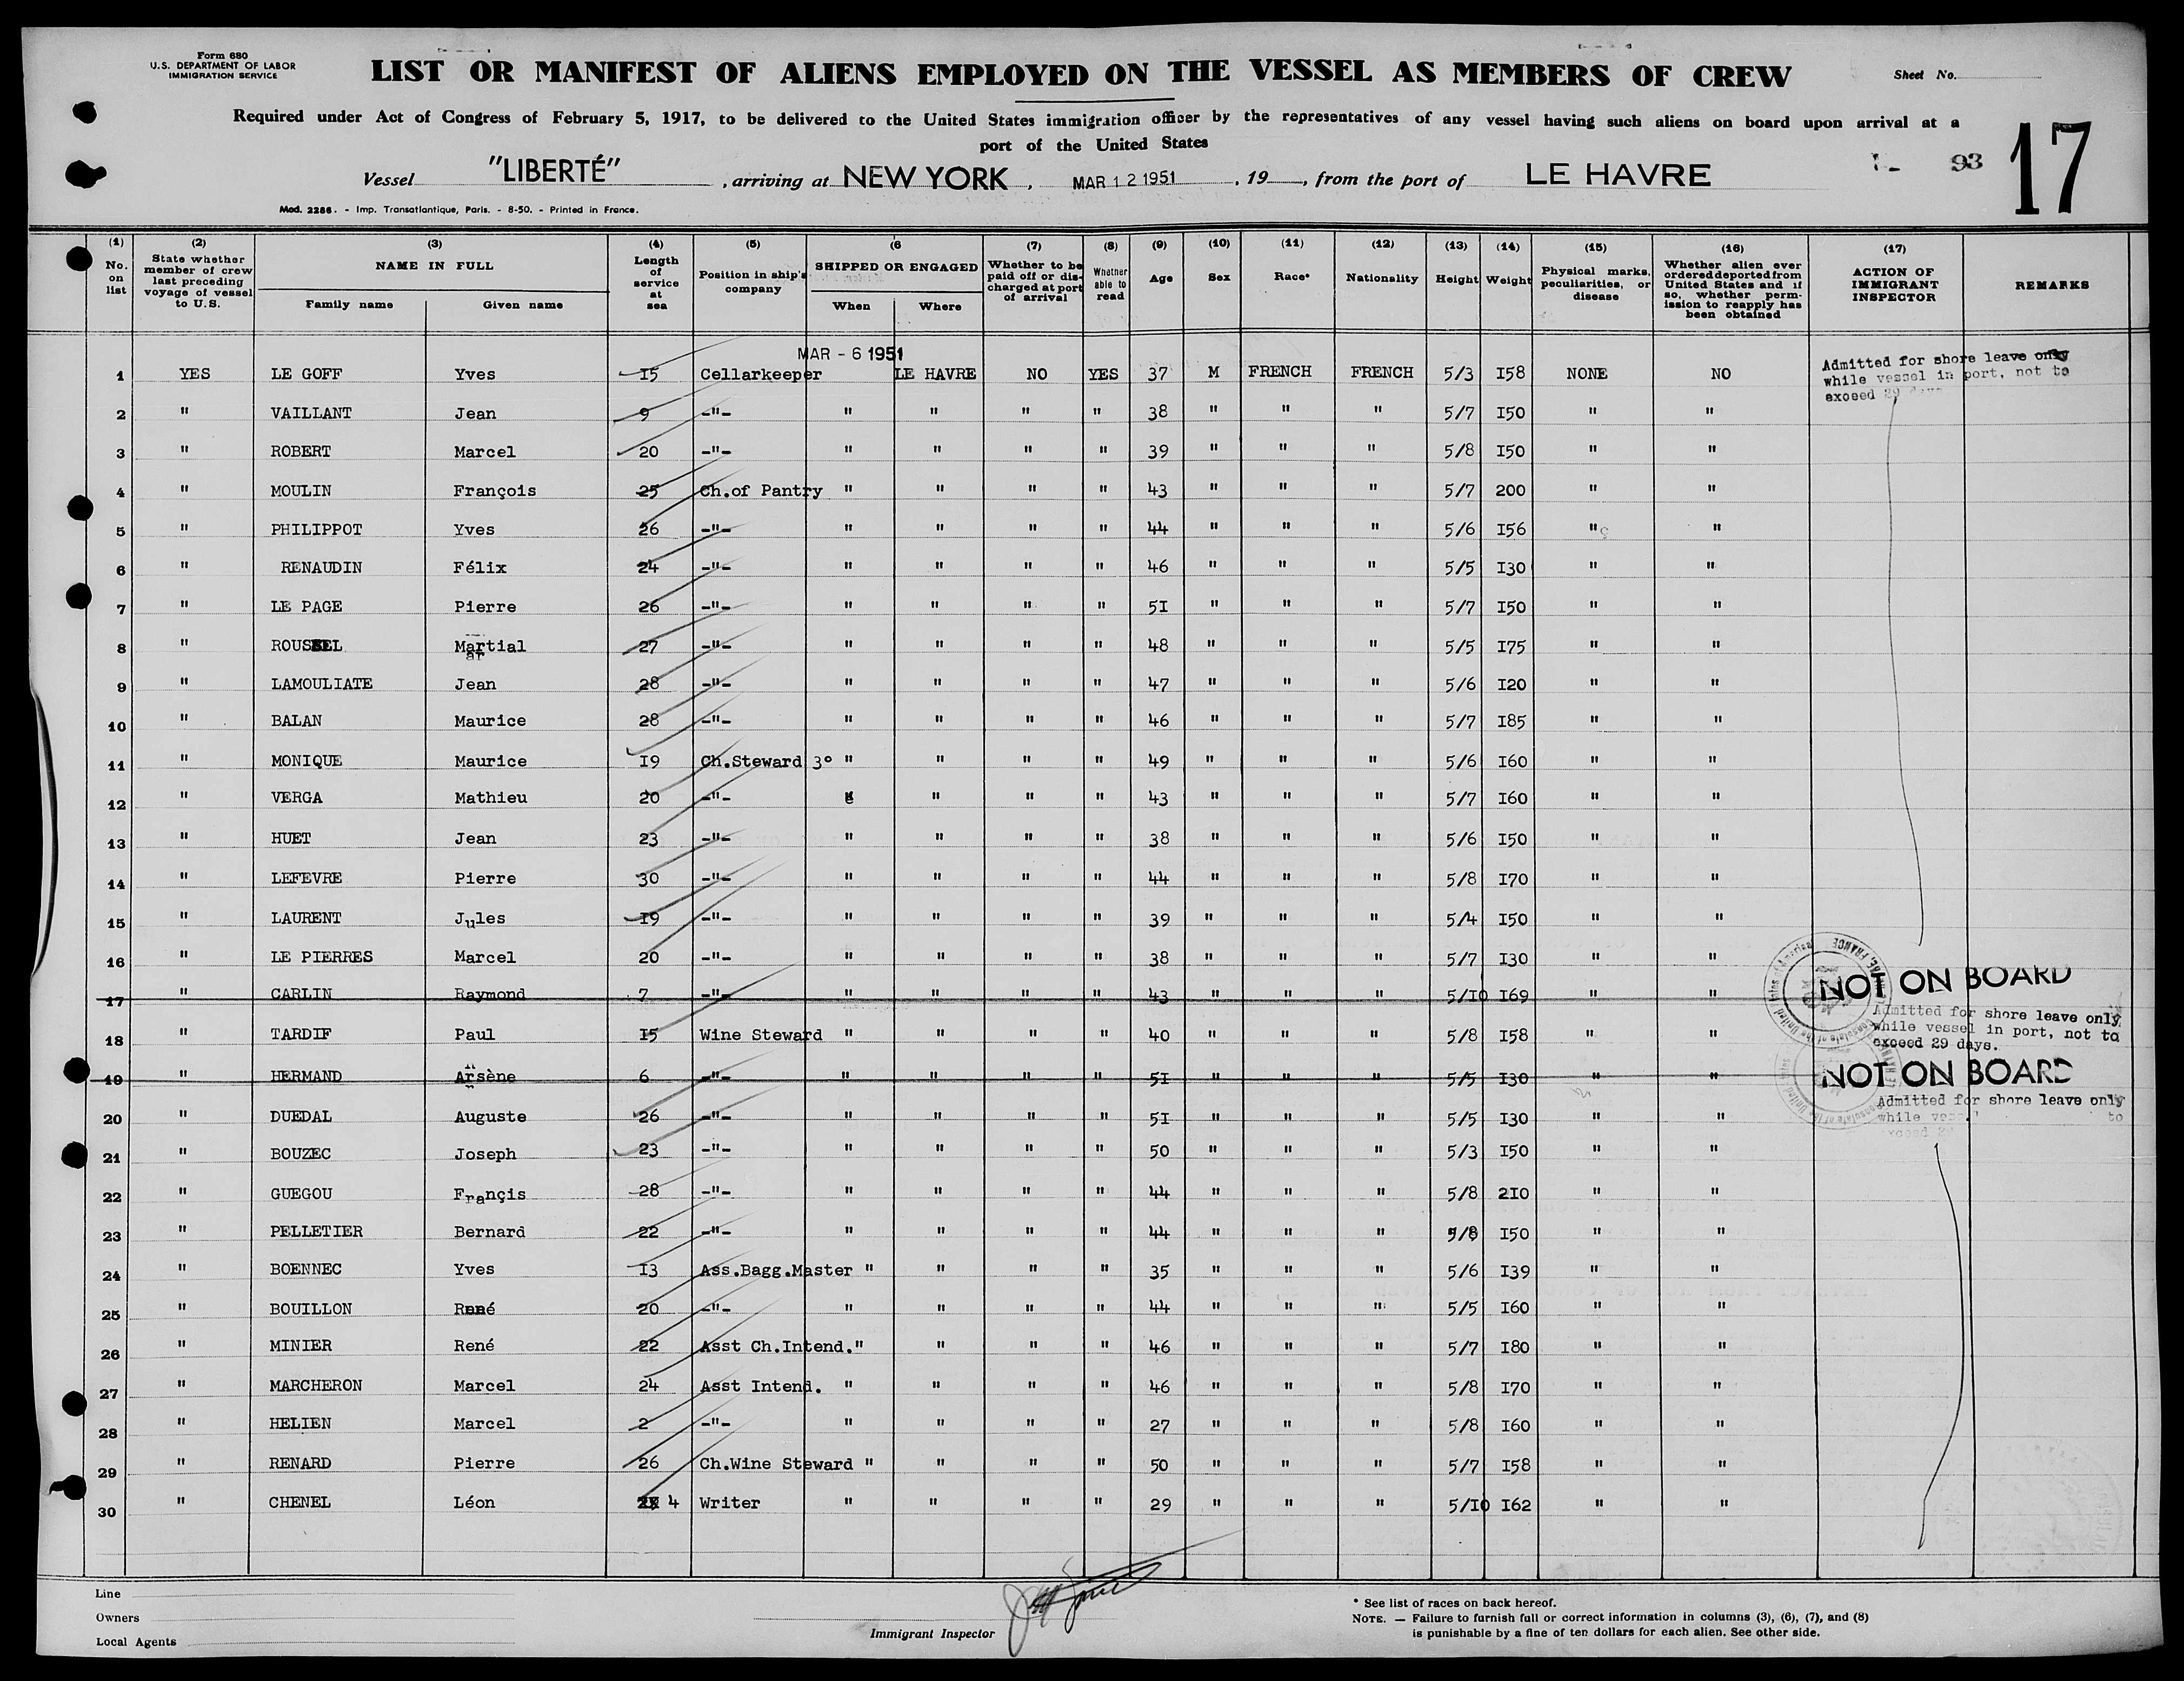 Form 680
U.S. DEPARTMENT OF LABOR
IMMIGRATION SERVICE
LIST OR MANIFEST OF ALIENS EMPLOYED ON THE VESSEL AS MEMBERS OF CREW
Sheet No.
Required under Act of Congress of February 5, 1917, to be delivered to the United States immigration officer by the representatives of any vessel having such aliens on board upon arrival at a
port of the United States
93 17
Vessel "LIBERTÉ" , arriving at NEW YORK , MAR 12 1951 , 19 , from the port of LE HAVRE
Mod. 2286. - Imp. Transatlantique, Paris. - 8-50. - Printed in France.
(1) No. on list
(2) State whether member of crew last preceding voyage of vessel to U.S.
(3) NAME IN FULL Family name Given name
(4) Length of service at sea
(5) Position in ship's company
(6 SHIPPED OR ENGAGED When Where
(7) Whether to be paid off or discharged at port of arrival
(8) Whether able to read
(9) Age
(10) Sex
(11) Race*
(12) Nationality
(13) Height
(14) Weight
(15) Physical marks, peculiarities, or disease
(16) Whether alien ever ordered deported from United States and if so, whether permission to reapply has been obtained
(17) ACTION OF IMMIGRANT INSPECTOR
REMARKS
MAR - 6 1951
1 YES LE GOFF Yves 15 Cellarkeeper LE HAVRE NO YES 37 M FRENCH FRENCH 5/3 I58 NONE NO
Admitted for shore leave only
while vessel in port, not to
exceed 29 days
2 " VAILLANT Jean 9 -"- " " " " 38 " " " 5/7 I50 " "
3 " ROBERT Marcel 20 -"- " " " " 39 " " " 5/8 I50 " "
4 " MOULIN François 25 Ch.of Pantry " " " " 43 " " " 5/7 200 " "
5 " PHILIPPOT Yves 26 -"- " " " " 44 " " " 5/6 I56 " "
6 " RENAUDIN Félix 24 -"- " " " " 46 " " " 5/5 I30 " "
7 " LE PAGE Pierre 26 -"- " " " " 5I " " " 5/7 I50 " "
8 " ROUSSEL Martial 27 -"- " " " " 48 " " " 5/5 I75 " "
ar
9 " LAMOULIATE Jean 28 -"- " " " " 47 " " " 5/6 I20 " "
10 " BALAN Maurice 28 -"- " " " " 46 " " " 5/7 I85 " "
11 " MONIQUE Maurice I9 Ch.Steward 3° " " " " 49 " " " 5/6 I60 " "
12 " VERGA Mathieu 20 -"- " " " 43 " " " 5/7 I60 " "
13 " HUET Jean 23 -"- " " " " 38 " " " 5/6 I50 " "
14 " LEFEVRE Pierre 30 -"- " " " " 44 " " " 5/8 I70 " "
15 " LAURENT Jules I9 -"- " " " " 39 " " " 5/4 I50 " "
16 " LE PIERRES Marcel 20 -"- " " " " 38 " " " 5/7 I30 " "
17 " CARLIN Raymond 7 -"- " " " " 43 " " " 5/I0 I69 " " NOT ON BOARD
18 " TARDIF Paul I5 Wine Steward " " " " 40 " " " 5/8 I58 " "
Admitted for shore leave only
while vessel in port, not to
exceed 29 days.
19 " HERMAND Arsène 6 -"- " " " " 5I " " " 5/5 I30 " " NOT ON BOARD
20 " DUEDAL Auguste 26 -"- " " " " 5I " " " 5/5 I30 " "
Admitted for shore leave only
while to
21 " BOUZEC Joseph 23 -"- " " " " 50 " " " 5/3 I50 " "
22 " GUEGOU Françis 28 -"- " " " " 44 " " " 5/8 2I0 " "
23 " PELLETIER Bernard 22 -"- " " " " 44 " " " 5/8 I50 " "
24 " BOENNEC Yves I3 Ass.Bagg.Master " " " " 35 " " " 5/6 I39 " "
25 " BOUILLON René 20 -"- " " " " 44 " " " 5/5 I60 " "
26 " MINIER René 22 Asst Ch.Intend. " " " " 46 " " " 5/7 I80 " "
27 " MARCHERON Marcel 24 Asst Intend. " " " " 46 " " " 5/8 I70 " "
28 " HELIEN Marcel 2 -"- " " " " 27 " " " 5/8 I60 " "
29 " RENARD Pierre 26 Ch.Wine Steward " " " " 50 " " " 5/7 I58 " "
30 " CHENEL Léon 4 Writer " " " " 29 " " " 5/I0 I62 " "
Line
Owners
Local Agents
Immigrant Inspector
* See list of races on back hereof.
NOTE. — Failure to furnish full or correct information in columns (3), (6), (7), and (8)
is punishable by a fine of ten dollars for each alien. See other side.